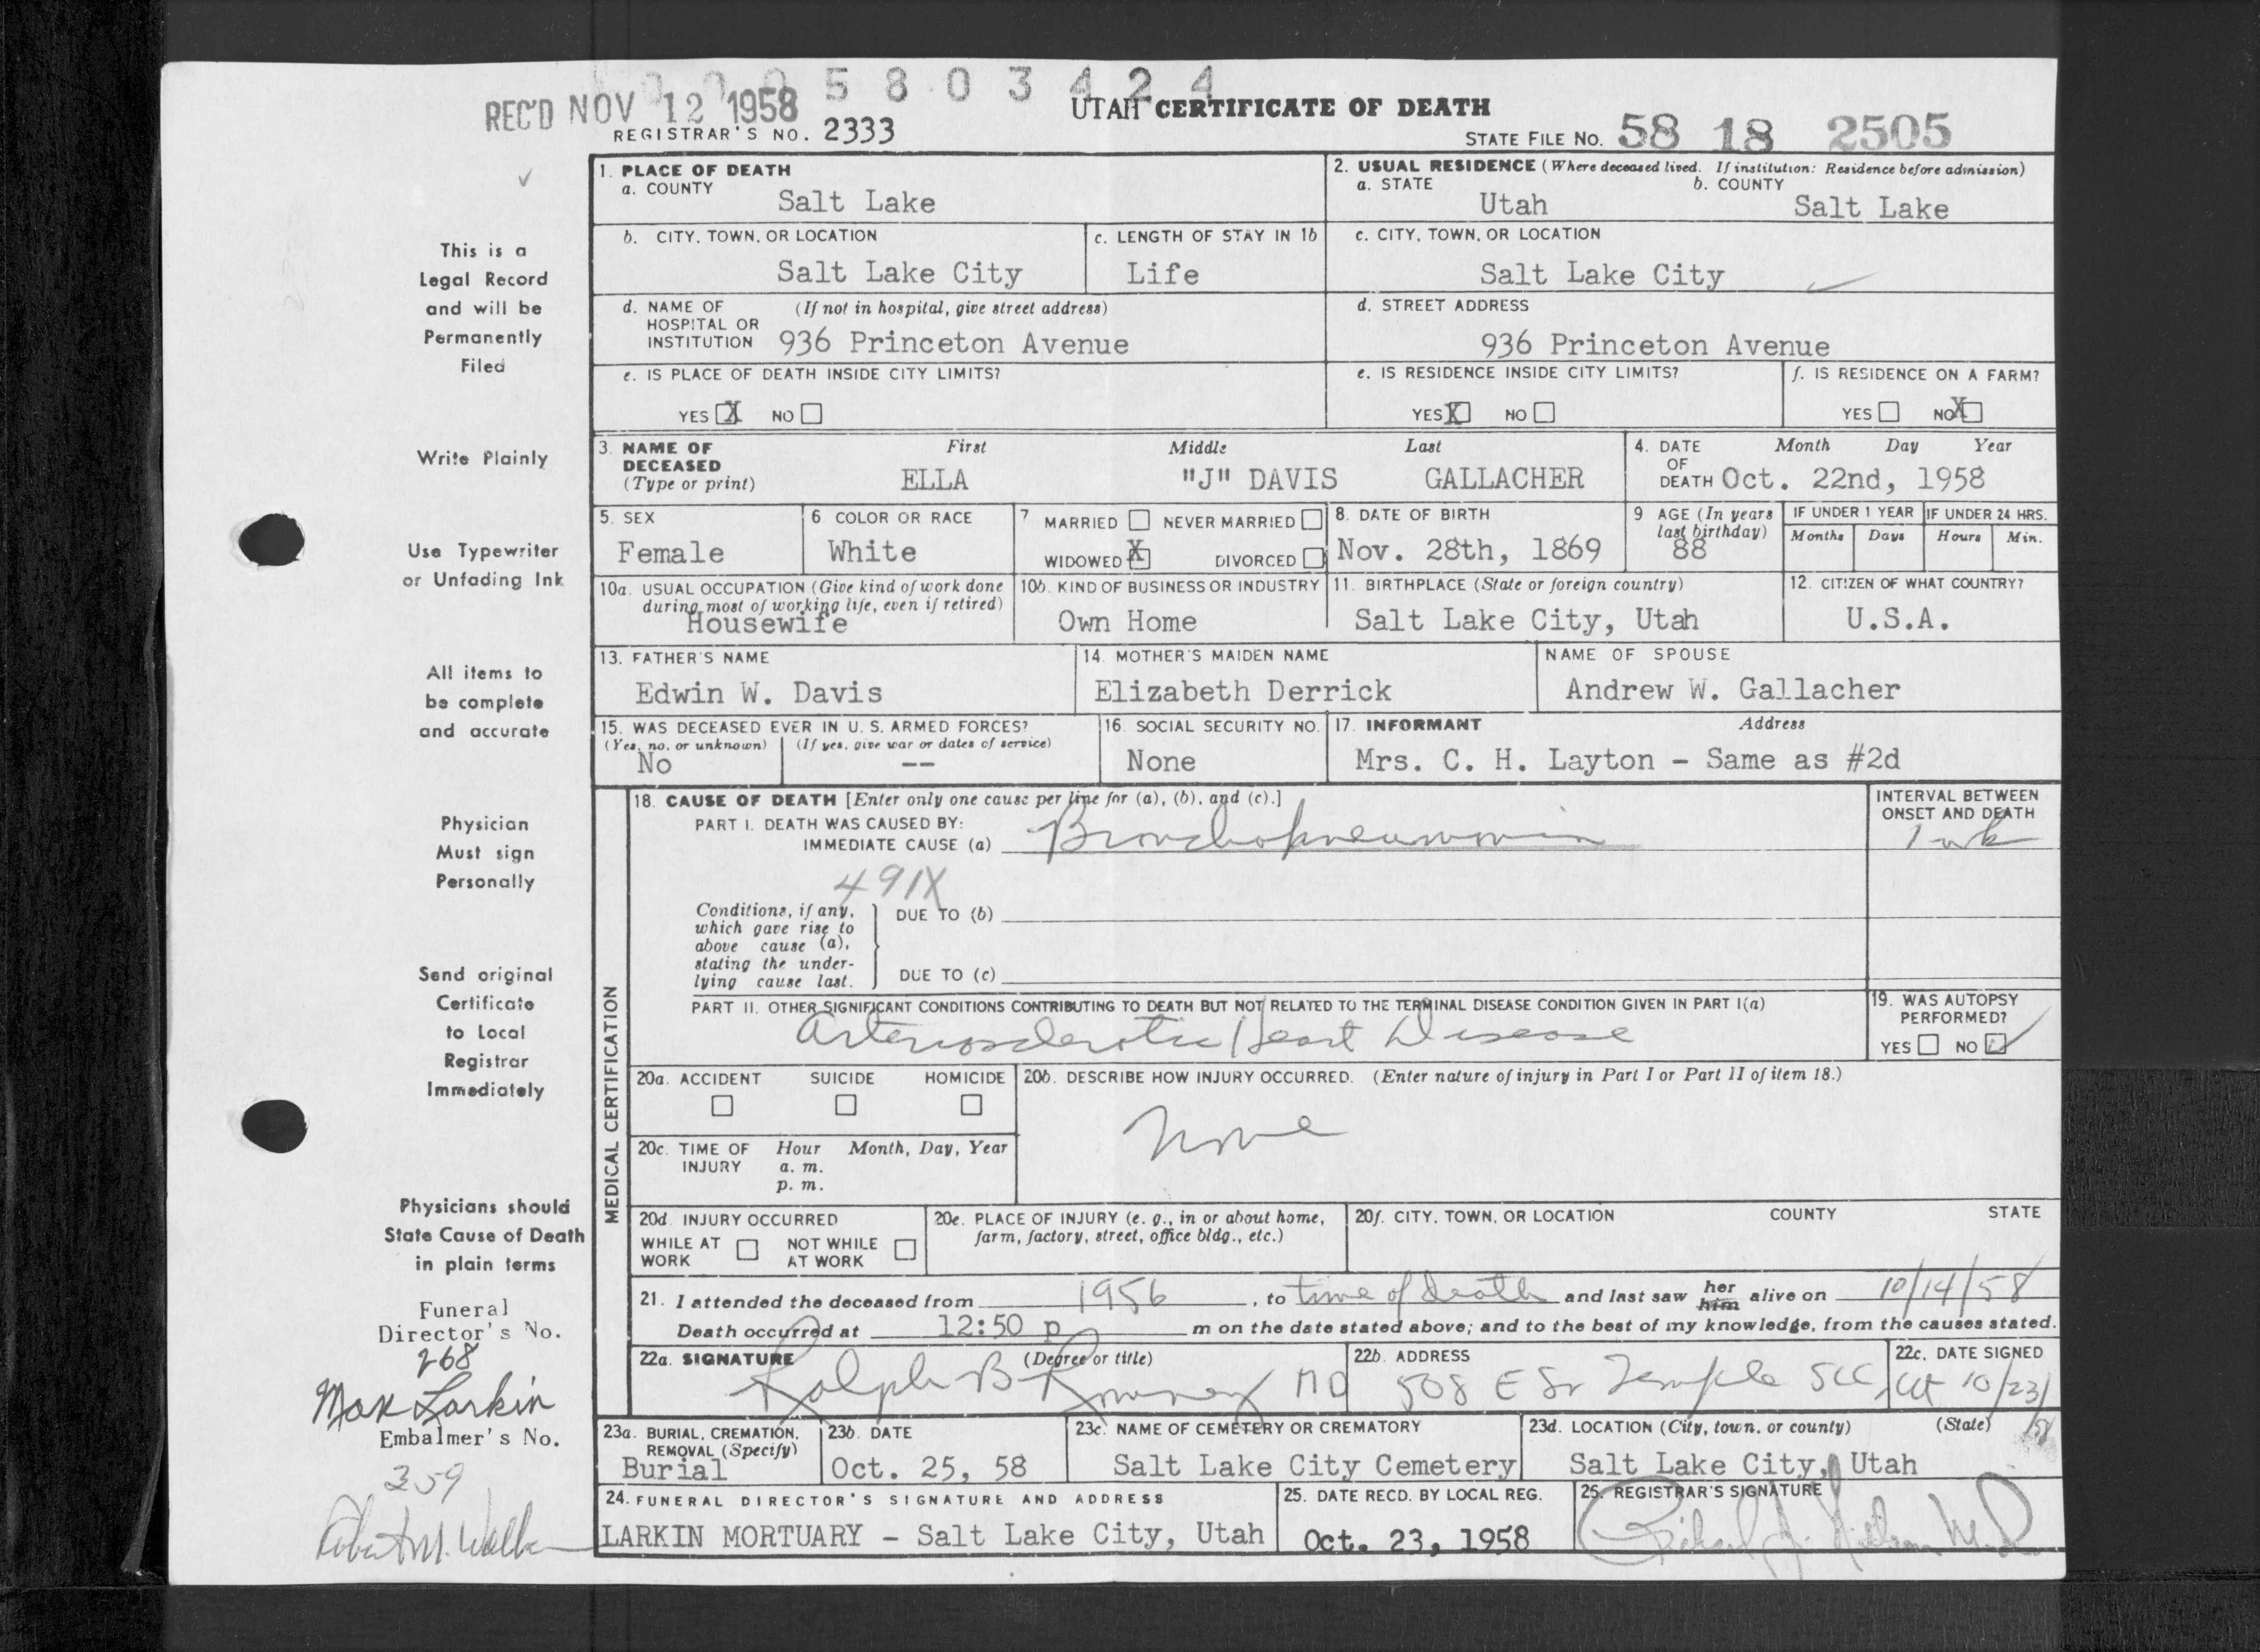 0 0 0 5 8 0 3 4 2 4
REC'D NOV 12 1958
UTAH CERTIFICATE OF DEATH
REGISTRAR'S NO. 2333
STATE FILE NO. 58 18 2505
This is a
Legal Record
and will be
Permanently
Filed
Write Plainly
Use Typewriter
or Unfading Ink
All items to
be complete
and accurate
Physician
Must sign
Personally
Send original
Certificate
to Local
Registrar
Immediately
Physicians should
State Cause of Death
in plain terms
Funeral
Director's No.
268
Max Larkin
Embalmer's No.
359
Robert M.
1. PLACE OF DEATH
a. COUNTY
Salt Lake
2. USUAL RESIDENCE (Where deceased lived. If institution: Residence before admission)
a. STATE b. COUNTY
Utah Salt Lake
b. CITY, TOWN, OR LOCATION
Salt Lake City
c. LENGTH OF STAY IN 1b
Life
c. CITY, TOWN, OR LOCATION
Salt Lake City
d. NAME OF (If not in hospital, give street address)
HOSPITAL OR
INSTITUTION 936 Princeton Avenue
d. STREET ADDRESS
936 Princeton Avenue
e. IS PLACE OF DEATH INSIDE CITY LIMITS?
YES X NO
e. IS RESIDENCE INSIDE CITY LIMITS?
YES X NO
f. IS RESIDENCE ON A FARM?
YES NO X
3. NAME OF First Middle Last
DECEASED
(Type or print) ELLA "J" DAVIS GALLACHER
4. DATE Month Day Year
OF
DEATH Oct. 22nd, 1958
5. SEX
Female
6. COLOR OR RACE
White
7 MARRIED NEVER MARRIED
WIDOWED X DIVORCED
8. DATE OF BIRTH
Nov. 28th, 1869
9 AGE (In years
last birthday)
88
IF UNDER 1 YEAR IF UNDER 24 HRS.
Months Days Hours Min.
10a. USUAL OCCUPATION (Give kind of work done
during most of working life, even if retired)
Housewife
10b. KIND OF BUSINESS OR INDUSTRY
Own Home
11. BIRTHPLACE (State or foreign country)
Salt Lake City, Utah
12. CITIZEN OF WHAT COUNTRY?
U.S.A.
13. FATHER'S NAME
Edwin W. Davis
14. MOTHER'S MAIDEN NAME
Elizabeth Derrick
NAME OF SPOUSE
Andrew W. Gallacher
15. WAS DECEASED EVER IN U. S. ARMED FORCES?
(Yes, no, or unknown) (If yes, give war or dates of service)
No --
16. SOCIAL SECURITY NO.
None
17. INFORMANT Address
Mrs. C. H. Layton - Same as #2d
MEDICAL CERTIFICATION
18. CAUSE OF DEATH [Enter only one cause per line for (a), (b), and (c).]
PART I. DEATH WAS CAUSED BY:
IMMEDIATE CAUSE (a) Bronchopneumonia
INTERVAL BETWEEN
ONSET AND DEATH
1 wk
491X
Conditions, if any,
which gave rise to
above cause (a),
stating the under-
lying cause last.
DUE TO (b)
DUE TO (c)
PART II. OTHER SIGNIFICANT CONDITIONS CONTRIBUTING TO DEATH BUT NOT RELATED TO THE TERMINAL DISEASE CONDITION GIVEN IN PART I(a)
Arteriosclerotic Heart Disease
19. WAS AUTOPSY
PERFORMED?
YES NO ✓
20a. ACCIDENT SUICIDE HOMICIDE
20b. DESCRIBE HOW INJURY OCCURRED. (Enter nature of injury in Part I or Part II of item 18.)
None
20c. TIME OF Hour Month, Day, Year
INJURY a. m.
p. m.
20d. INJURY OCCURRED
WHILE AT NOT WHILE
WORK AT WORK
20e. PLACE OF INJURY (e. g., in or about home,
farm, factory, street, office bldg., etc.)
20f. CITY, TOWN, OR LOCATION COUNTY STATE
21. I attended the deceased from 1956, to time of death and last saw her him alive on 10/14/58
Death occurred at 12:50 p m on the date stated above; and to the best of my knowledge, from the causes stated.
22a. SIGNATURE (Degree or title)
Ralph B Romney MD
22b. ADDRESS
508 E So Temple SLC, Ut
22c. DATE SIGNED
10/23/58
23a. BURIAL, CREMATION,
REMOVAL (Specify)
Burial
23b. DATE
Oct. 25, 58
23c. NAME OF CEMETERY OR CREMATORY
Salt Lake City Cemetery
23d. LOCATION (City, town, or county) (State)
Salt Lake City, Utah
24. FUNERAL DIRECTOR'S SIGNATURE AND ADDRESS
LARKIN MORTUARY - Salt Lake City, Utah
25. DATE RECD. BY LOCAL REG.
Oct. 23, 1958
26. REGISTRAR'S SIGNATURE